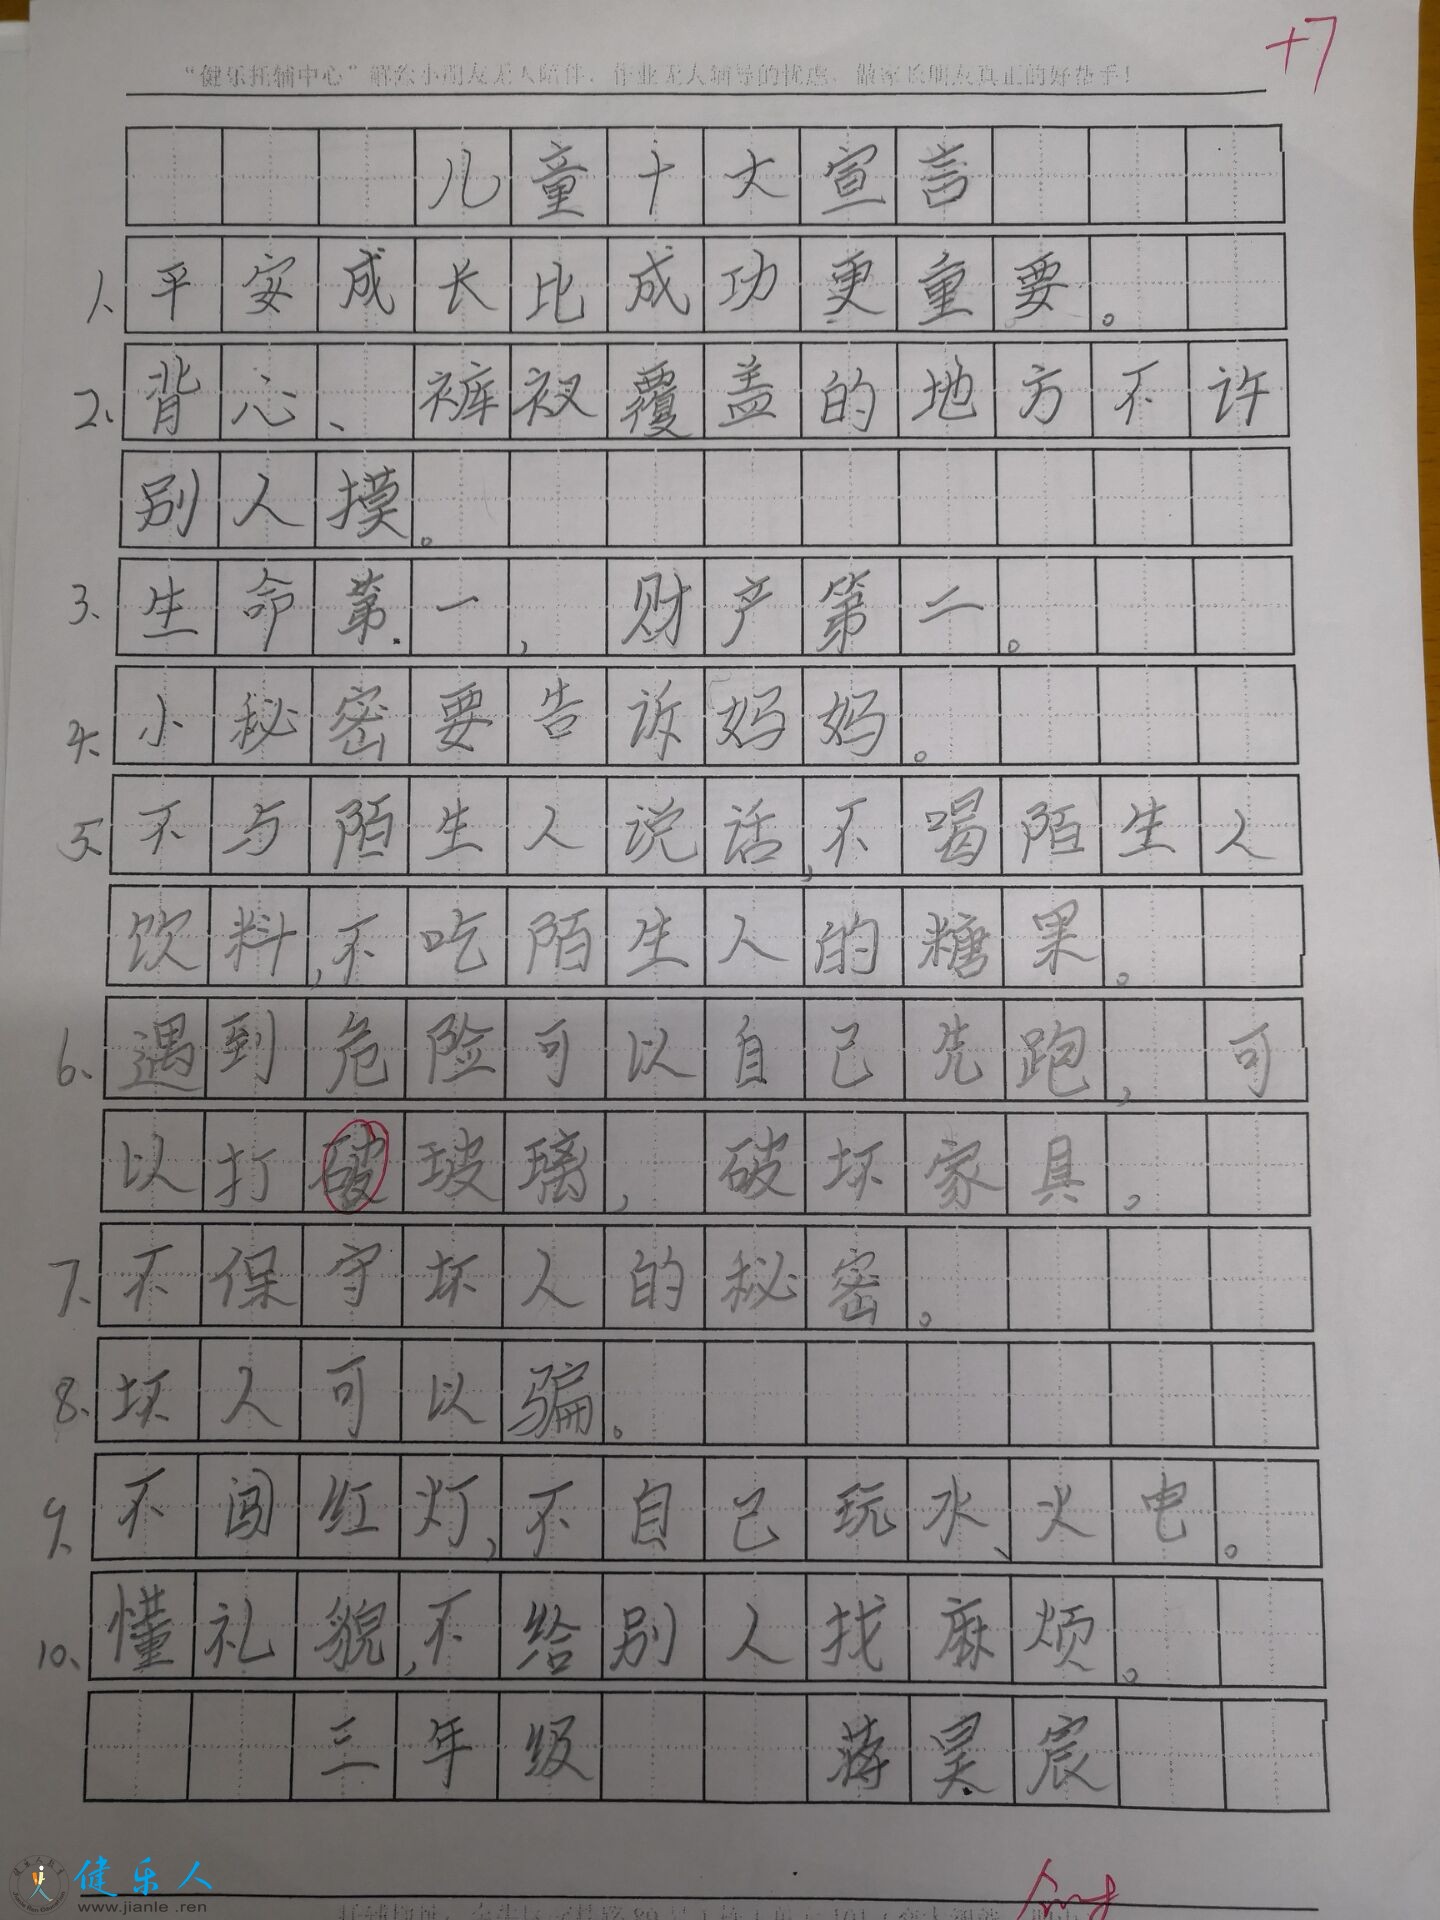 +7
“健乐托辅中心”解除小朋友无人陪伴，作业无人辅导的忧虑，做家长朋友真正的好帮手！
儿童十大宣言
1、平安成长比成功更重要。
2、背心、裤衩覆盖的地方不许
别人摸。
3、生命第一，财产第二。
4、小秘密要告诉妈妈。
5、不与陌生人说话，不喝陌生人
饮料，不吃陌生人的糖果。
6、遇到危险可以自己先跑，可
以打破玻璃，破坏家具。
7、不保守坏人的秘密。
8、坏人可以骗。
9、不闯红灯，不自己玩水、火电。
10、懂礼貌，不给别人找麻烦。
三年级 蒋昊宸
健乐人
www.jianle.ren